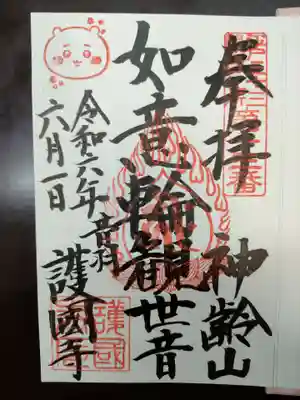 奉拝 神齢山
如意輪観世音
令和六年 音羽 護國寺
六月一日